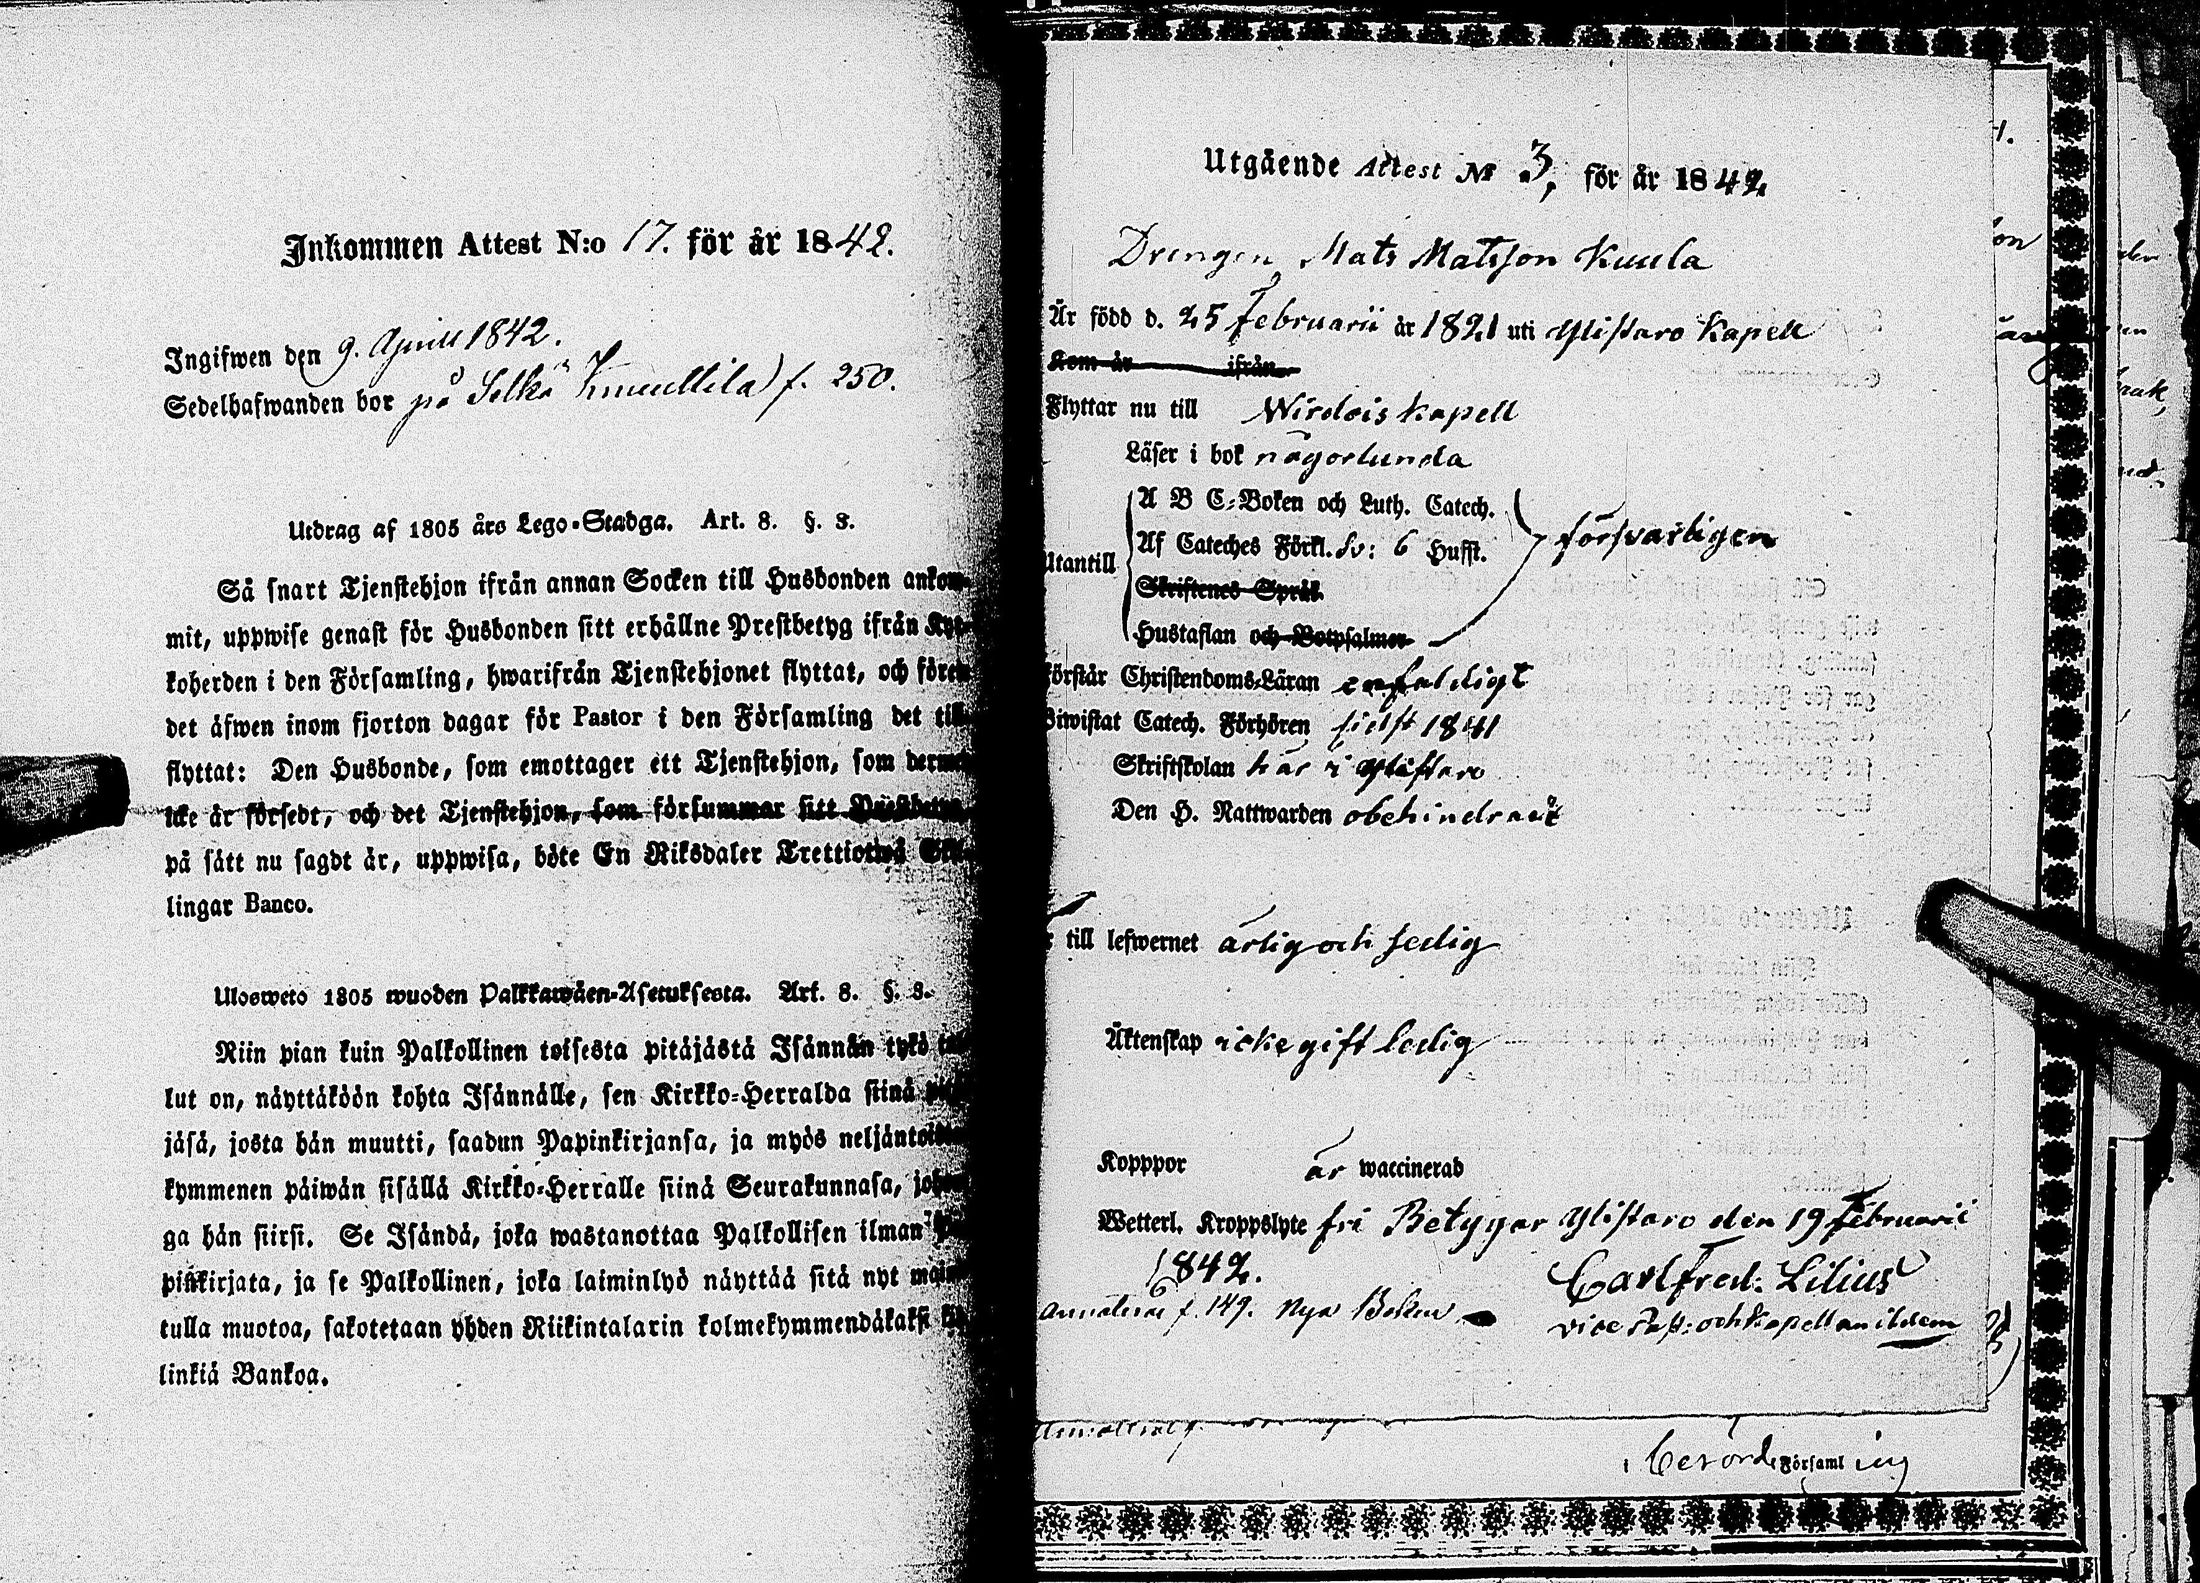 Inkommen Attest N:o 17. för år 1842.
Ingifwen den 9. Aprill 1842.
Sedelhafwanden bor på Selkä Knuuttila) f. 250.
Utdrag af 1805 års Lego-Stadga. Art. 8. §. 3.
Så snart Tjenstehjon ifrån annan Socken till Husbonden ankom-
mit, uppwise genast för Husbonden sitt erhållne Prestbetyg ifrån Kyr-
koherden i den Församling, hwarifrån Tjenstehjonet flyttat, och förete
det äfwen inom fjorton dagar för Pastor i den Församling det till-
flyttat: Den Husbonde, som emottager ett Tjenstehjon, som dermed
icke är försedt, och det Tjenstehjon, som försummar sitt Prestbetyg,
på sätt nu sagdt är, uppwisa, böte En Riksdaler Trettiotwå Skil-
lingar Banco.
Ulosweto 1805 wuoden Palkkawäen-Asetuksesta. Art. 8. §. 3.
Niin pian kuin Palkollinen toisesta pitäjästä Isännän tykö tul-
lut on, näyttäköön kohta Isännälle, sen Kirkko-Herralda siinä pitä-
jäsä, josta hän muutti, saadun Papinkirjansa, ja myös neljäntoista-
kymmenen päiwän sisällä Kirkko-Herralle siinä Seurakunnasa, johon-
ga hän siirsi. Se Isändä, joka wastanottaa Palkollisen ilman Pa-
pinkirjata, ja se Palkollinen, joka laiminlyö näyttää sitä nyt mainit-
tulla muotoa, sakotetaan yhden Riikintalarin kolmekymmendäkaksi kil-
linkiä Bankoa.
Utgående Attest No 3, för år 1842
Drengen Mats Matsson Kuula
Är född d. 25 februarii år 1821 uti Ylistaro Kapell
Kom år ifrån
Flyttar nu till Wirdois kapell
Läser i bok någorlunda
A B C-Boken och Luth. Catech.
Utantill Af Cateches Förkl. Sv: 6 Hufst. försvarligen
Skriftenes Språk
Hustaflan och Botpsalmer
Förstår Christendoms-Läran enfaldigt
Biwistat Catech. Förhören sidst 1841
Skriftskolan här i Ylistaro
Den H. Nattwarden obehindradt
till lefwernet ärlig och sedig
Äktenskap icke gift ledig
Kopppor är waccinerad
Wetterl. Kroppslyte fri Betygar Ylistaro den 19 Februarii
1842. Carl Fred: Lilius
Annoteras f. 149. Nya Boken vice Past: och kapellan ibidem
berörde Församling